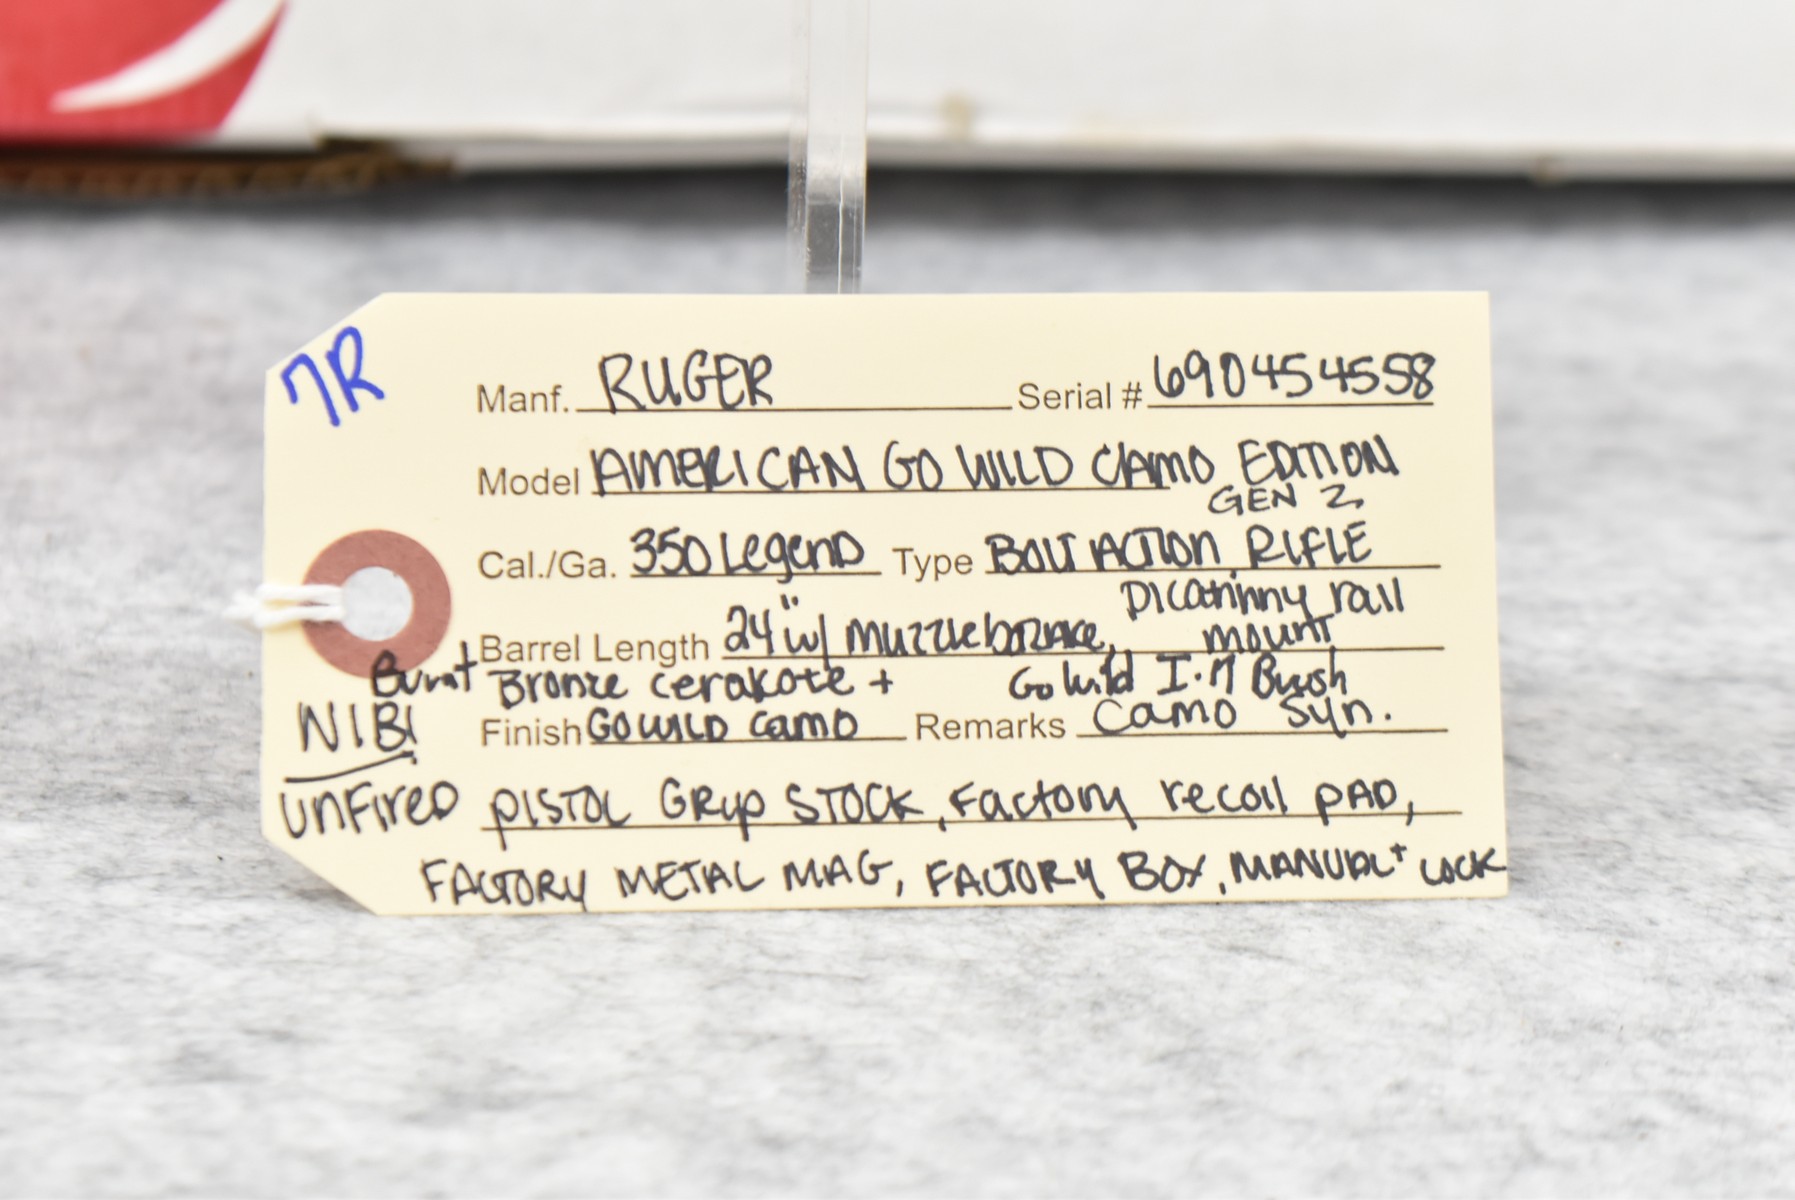 7R
Manf. RUGER Serial # 690454558
Model AMERICAN GO WILD CAMO EDITION
GEN 2
Cal./Ga. 350 Legend Type BOLT ACTION RIFLE
Picatinny rail
Barrel Length 24" w/ muzzle brake, mount
Burnt Bronze cerakote + Go Wild I-M Brush
Finish GO WILD camo Remarks Camo Syn.
NIB
UNFIRED PISTOL GRIP STOCK, Factory recoil PAD,
FACTORY METAL MAG, FACTORY BOX, MANUAL + LOCK